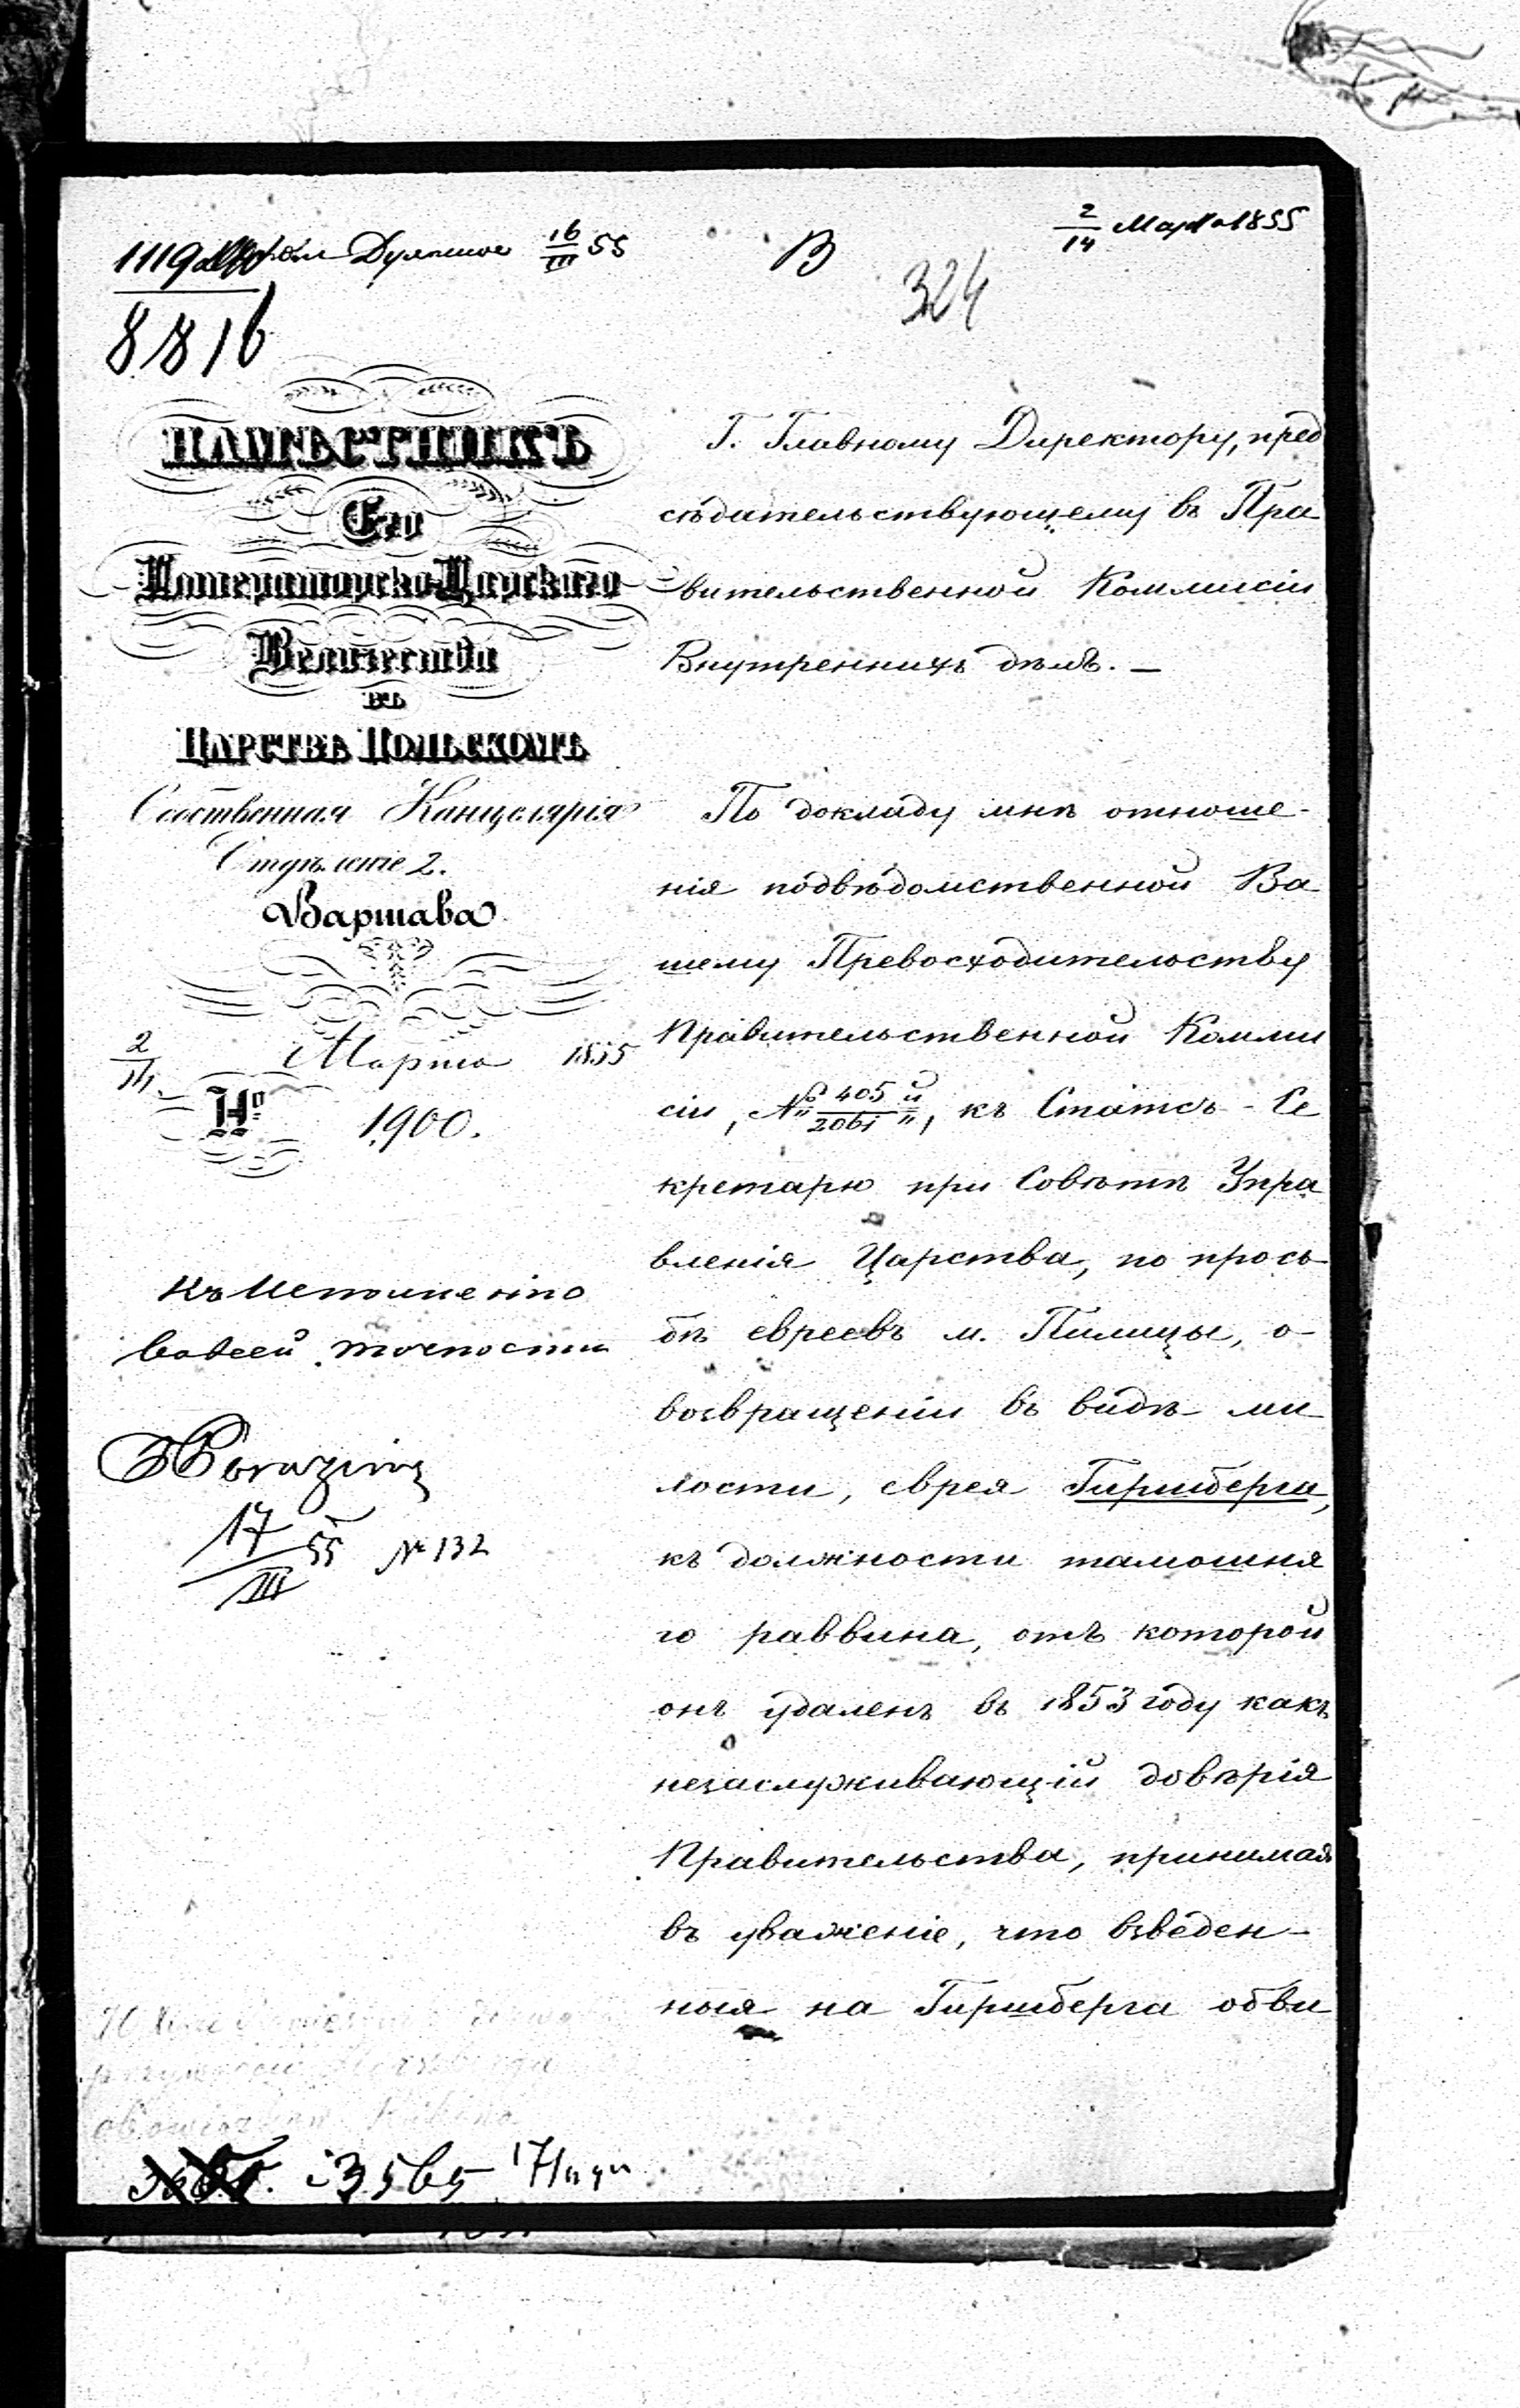 2/14 Марта 1855
1119 16/III 55
В
324
8816
НАМѢСТНИКЪ
Его
Императорско-Царскаго
Величества
въ
ЦАРСТВѢ ПОЛЬСКОМЪ
Собственная Канцелярія
Отдѣленіе 2.
Варшава
2/14 Марта 1855
Nº 1900.
Къ исполненію
во всей точности
17/III 55 № 132
Г. Главному Директору, пред
сѣдательствующему въ Пра
вительственной Коммисіи
Внутреннихъ дѣлъ. —
По докладу мнѣ отноше-
нія подвѣдомственной Ва
шему Превосходительству
Правительственной Комми
сіи, № 405/2061, къ Статсъ-Се
кретарю при Совѣтѣ Упра
вленія Царства, по прось
бѣ евреевъ м. Пилицы, о
возвращеніи въ видѣ ми
лости, еврея Гиршберга,
къ должности тамошня
го раввина, отъ которой
онъ удаленъ въ 1853 году какъ
незаслуживающій довѣрія
Правительства, принимая
въ уваженіе, что взведен-
ныя на Гиршберга обви
3565 17